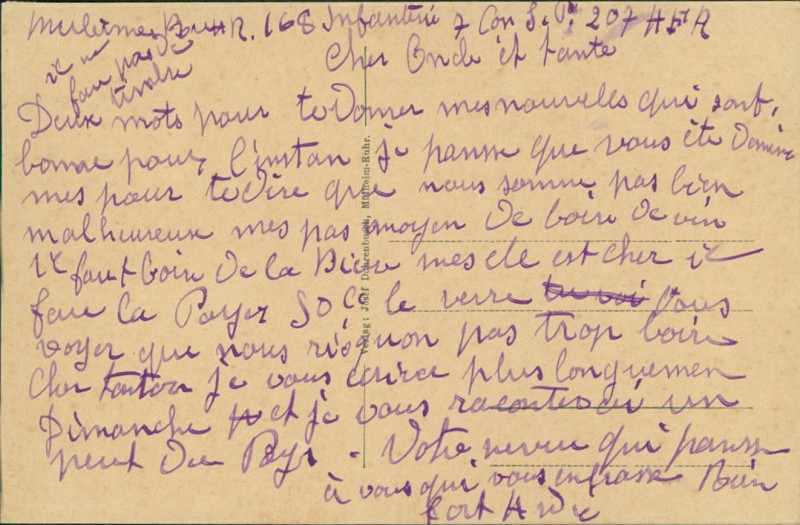 R. 168 Infanterie 7 Con S.P. 207
Cher Oncle et tante
il ne
faut pas de
timbre
Deux mots pour te Donner mes nouvelles qui sont
bonne pour l'instan je pansse que vous ête De même
mes pour te Dire que nous somme pas bien
malheureux mes pas moyen De boire De vin
il faut boire De la Biere mes elle est cher il
faut la Payer 50 le verre vous
voyer que nous risquon pas trop boire
Cher tonton je vous écrirai plus longuemen
Dimanche et je vous raconterai un
peut du Pays. Votre neveu qui pansse
à vous qui vous enbrasse Bien
fort
Verlag: Josef Mülheim-Ruhr.